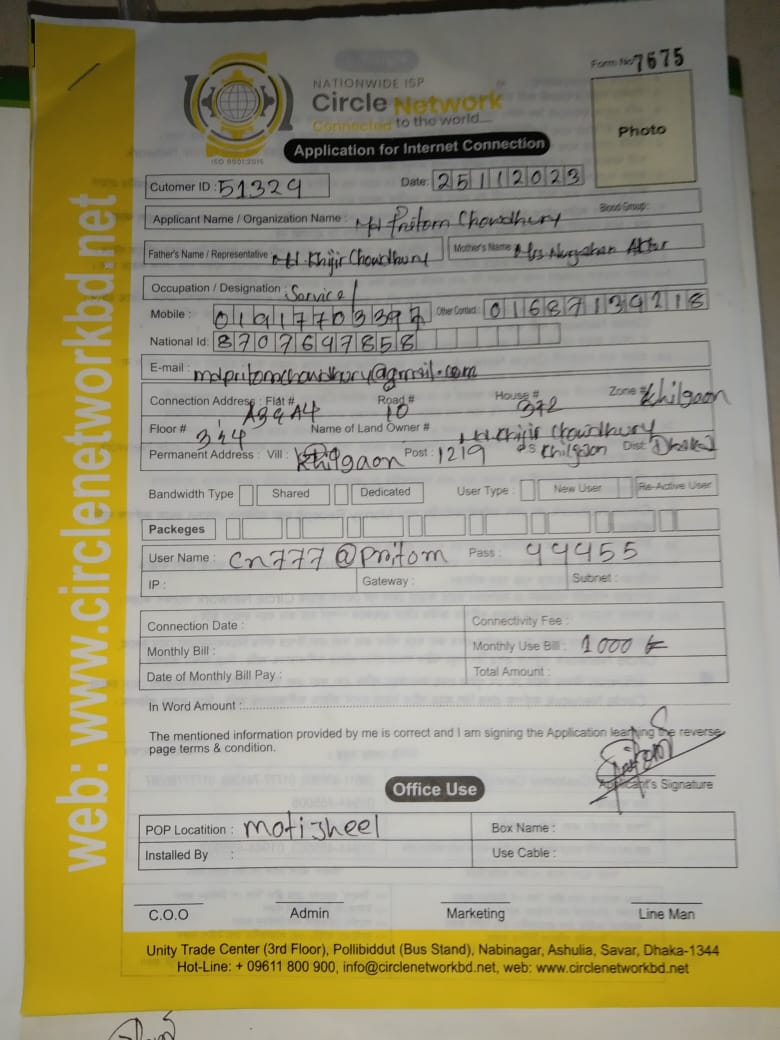 Form No 7675
NATIONWIDE ISP
Circle Network
Connected to the world....
ISO 9001:2015
Application for Internet Connection
Photo
Cutomer ID : 51329 Date: 25112023
Applicant Name / Organization Name : Md Pritom Chowdhury Blood Group:
Father's Name / Representative : Md. Khijir Chowdhury Mother's Name : Mrs Nurjahan Akter
Occupation / Designation : Service
Mobile : Other Contact : 01687139218
National Id: 8707647858
E-mail : mdpritomchowdhury@gmail.com
Connection Address : Flat # A3 & A4 Road # 10 House # 372 Zone # Khilgaon
Floor # 3 & 4 Name of Land Owner # Md Khijir Chowdhury
Permanent Address : Vill : Khilgaon Post : 1219 P.S Khilgaon Dist: Dhaka
Bandwidth Type Shared Dedicated User Type : New User Re-Active User
Packeges
User Name : cn777@pritom Pass : 99955
IP : Gateway : Subnet :
Connection Date : Connectivity Fee :
Monthly Bill : Monthly Use Bill : 1000 tk
Date of Monthly Bill Pay : Total Amount :
In Word Amount :
The mentioned information provided by me is correct and I am signing the Application learning the reverse
page terms & condition.
Pritom
Applicant's Signature
Office Use
POP Locatition : motijheel Box Name :
Installed By : Use Cable :
C.O.O Admin Marketing Line Man
Unity Trade Center (3rd Floor), Pollibiddut (Bus Stand), Nabinagar, Ashulia, Savar, Dhaka-1344
Hot-Line: + 09611 800 900, info@circlenetworkbd.net, web: www.circlenetworkbd.net
web: www.circlenetworkbd.net